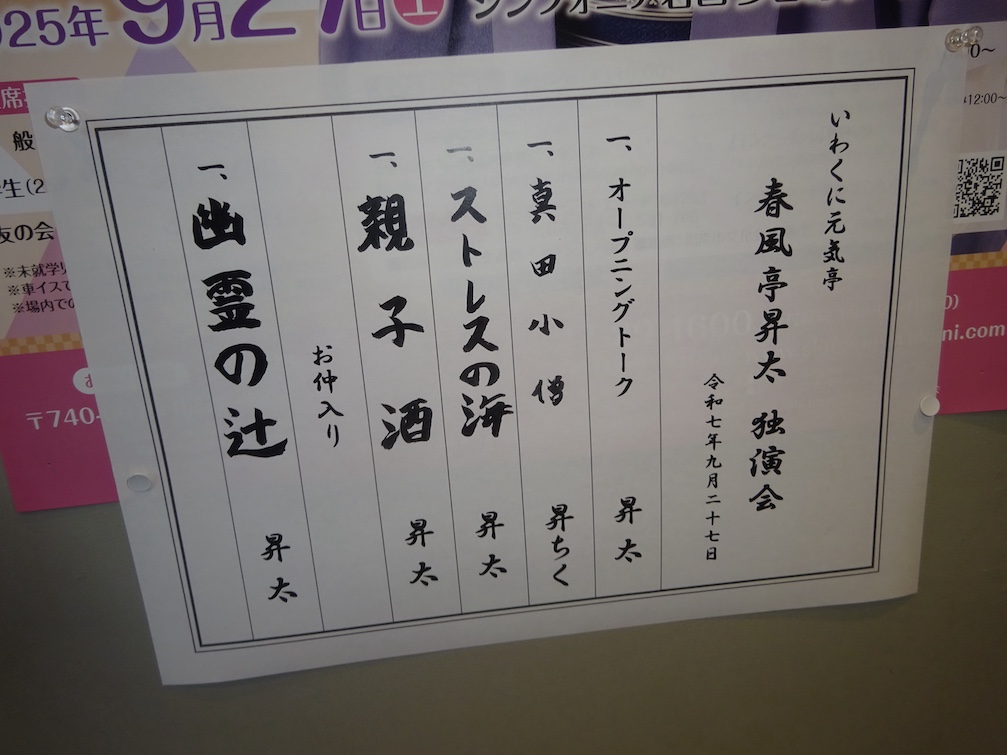 2025年9月27日(土)
いわくに元気亭
春風亭昇太 独演会
令和七年九月二十七日
一、オープニングトーク 昇太
一、真田小僧 昇ちく
一、ストレスの海 昇太
一、親子酒 昇太
お仲入り
一、幽霊の辻 昇太
友の会
※未就学児
※車イスで
※場内での
〒740-
0～
12:00～
ni.com